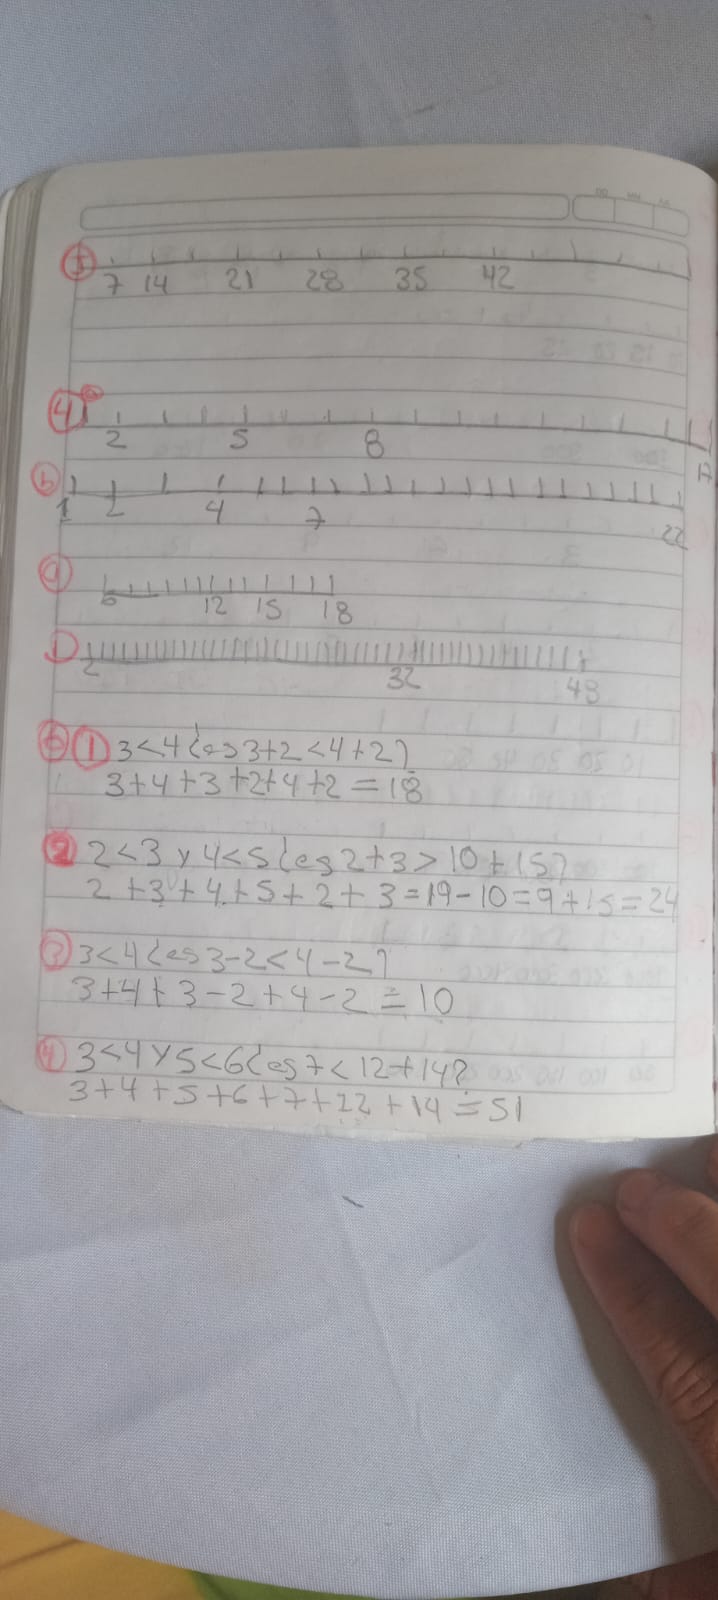 5
7 14 21 28 35 42
4 a
2 5 8
b
1 2 4 7 22
c
6 12 15 18
D
2 32 48
6 1 3<4 ¿es 3+2<4+2?
3+4+3+2+4+2=18
2 2<3 y 4<5 ¿es 2+3>10+15?
2+3+4+5+2+3=19-10=9+15=24
3 3<4 ¿es 3-2<4-2?
3+4+3-2+4-2=10
4 3<4 y 5<6 ¿es 7<12+14?
3+4+5+6+7+12+14=51